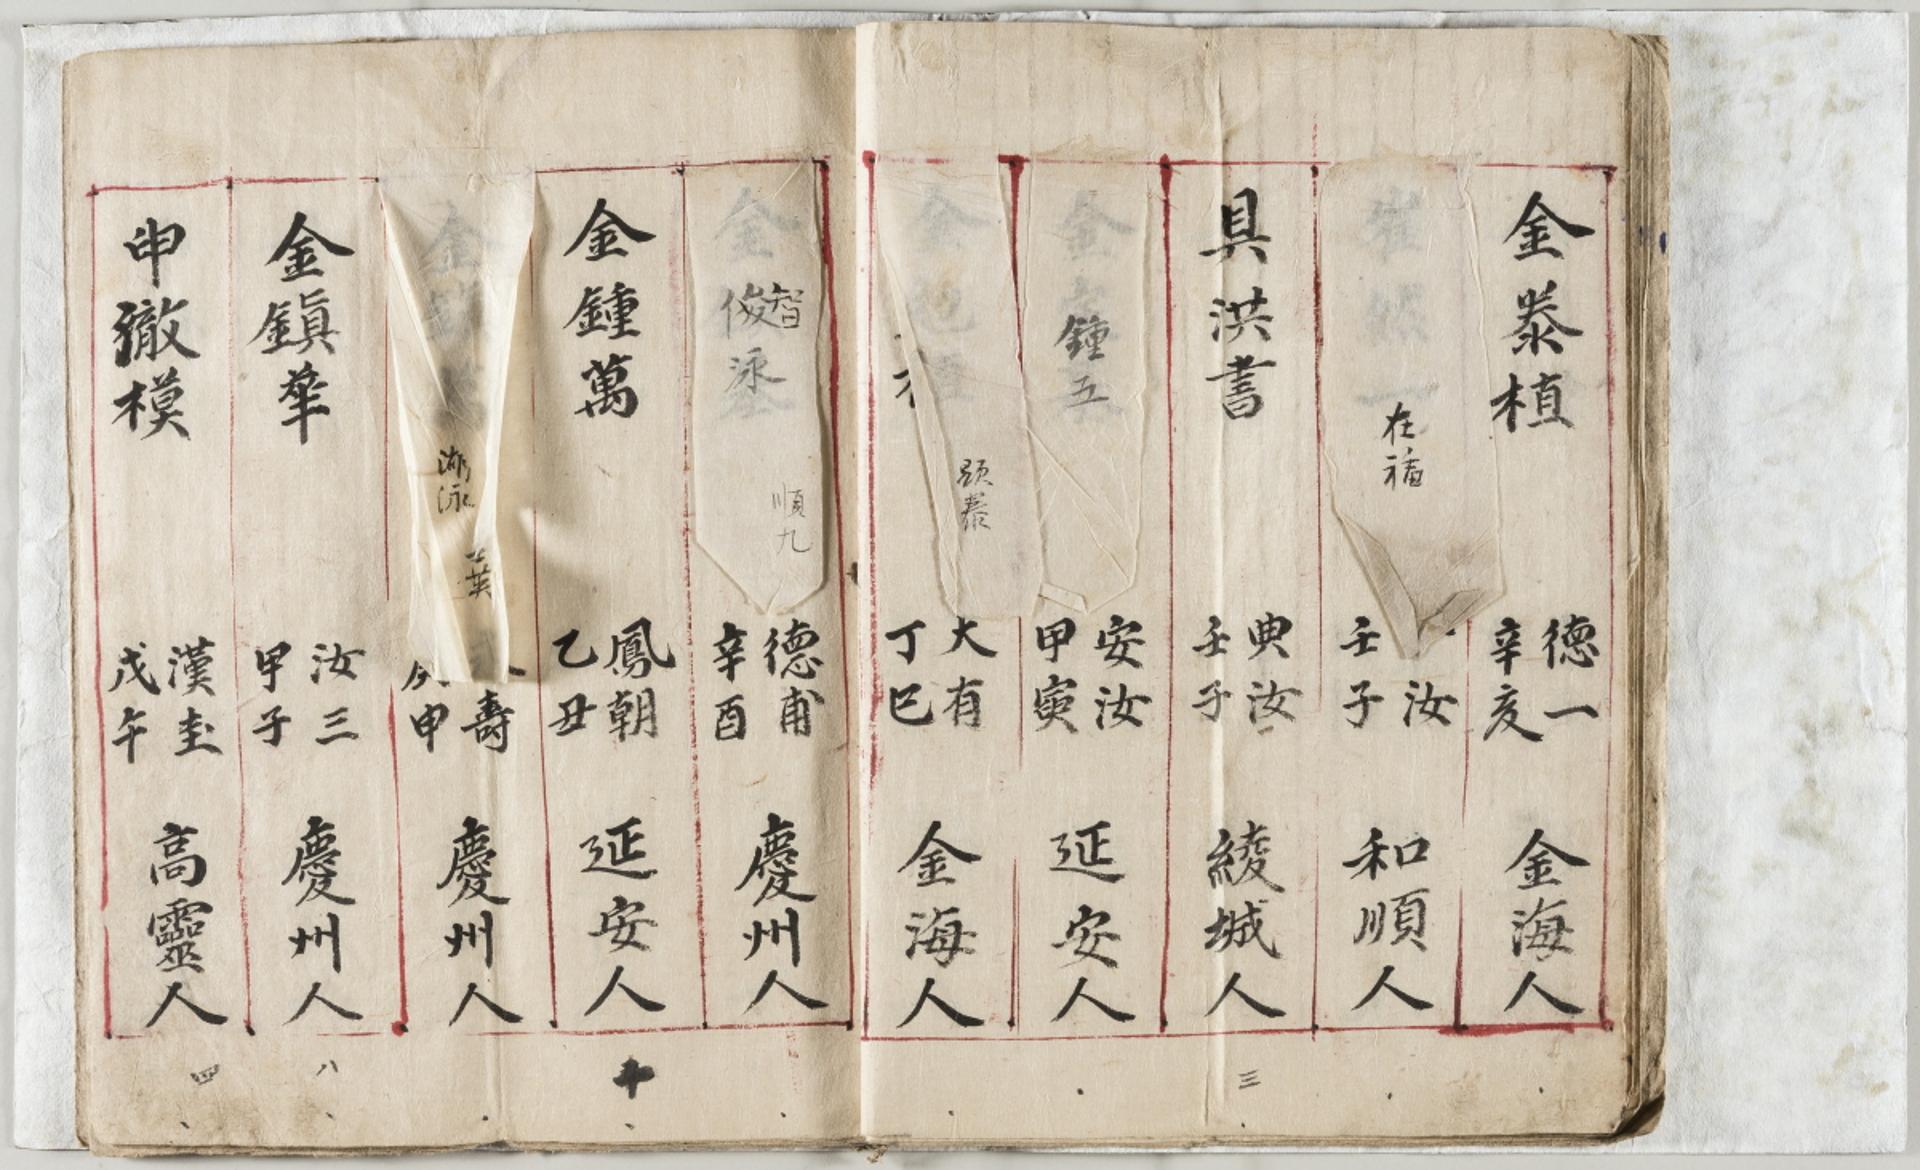 金泰植
德一
辛亥
金海人
在福
汝
壬子
和順人
具洪書
典汝
壬子
綾城人
三
金
鍾五
安汝
甲寅
延安人
金
顯泰
大有
丁巳
金海人
金
智
俊泳
順九
德甫
辛酉
慶州人
金鍾萬
鳳朝
乙丑
延安人
十
金
泳
壽
申
慶州人
金鎭華
汝三
甲子
慶州人
八
申徹模
漢圭
戊午
高靈人
四